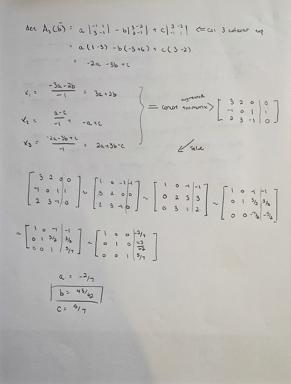 det A₃(b̄) = a |-1 1; 3 -1| - b |3 -2; 2 -1| + c |3 -2; -1 1| ⇐ col 3
= a(1-3) - b(-3+6) + c(3-2)
= -2a -3b +c
x₁ = (-3a-2b)/-1 = 3a+2b
x₂ = (a-c)/-1 = -a+c
x₃ = (-2a-3b+c)/-1 = 2a+3b-c
augmented
[3 2 0 | 0; -1 0 1 | 1; 2 3 -1 | 0]
solve
[3 2 0 0; -1 0 1 1; 2 3 -1 0] ~ [1 0 -1 -1; 3 2 0 0; 2 3 -1 0] ~ [1 0 -1 -1; 0 2 3 3; 0 3 1 2] ~ [1 0 -1 -1; 0 1 3/2 3/2; 0 0 -7/2 -5/2]
~ [1 0 -1 -1; 0 1 3/2 3/2; 0 0 1 5/7] ~ [1 0 0 -2/7; 0 1 0; 0 0 1 5/7]
a = -2/7
b =
c = 5/7